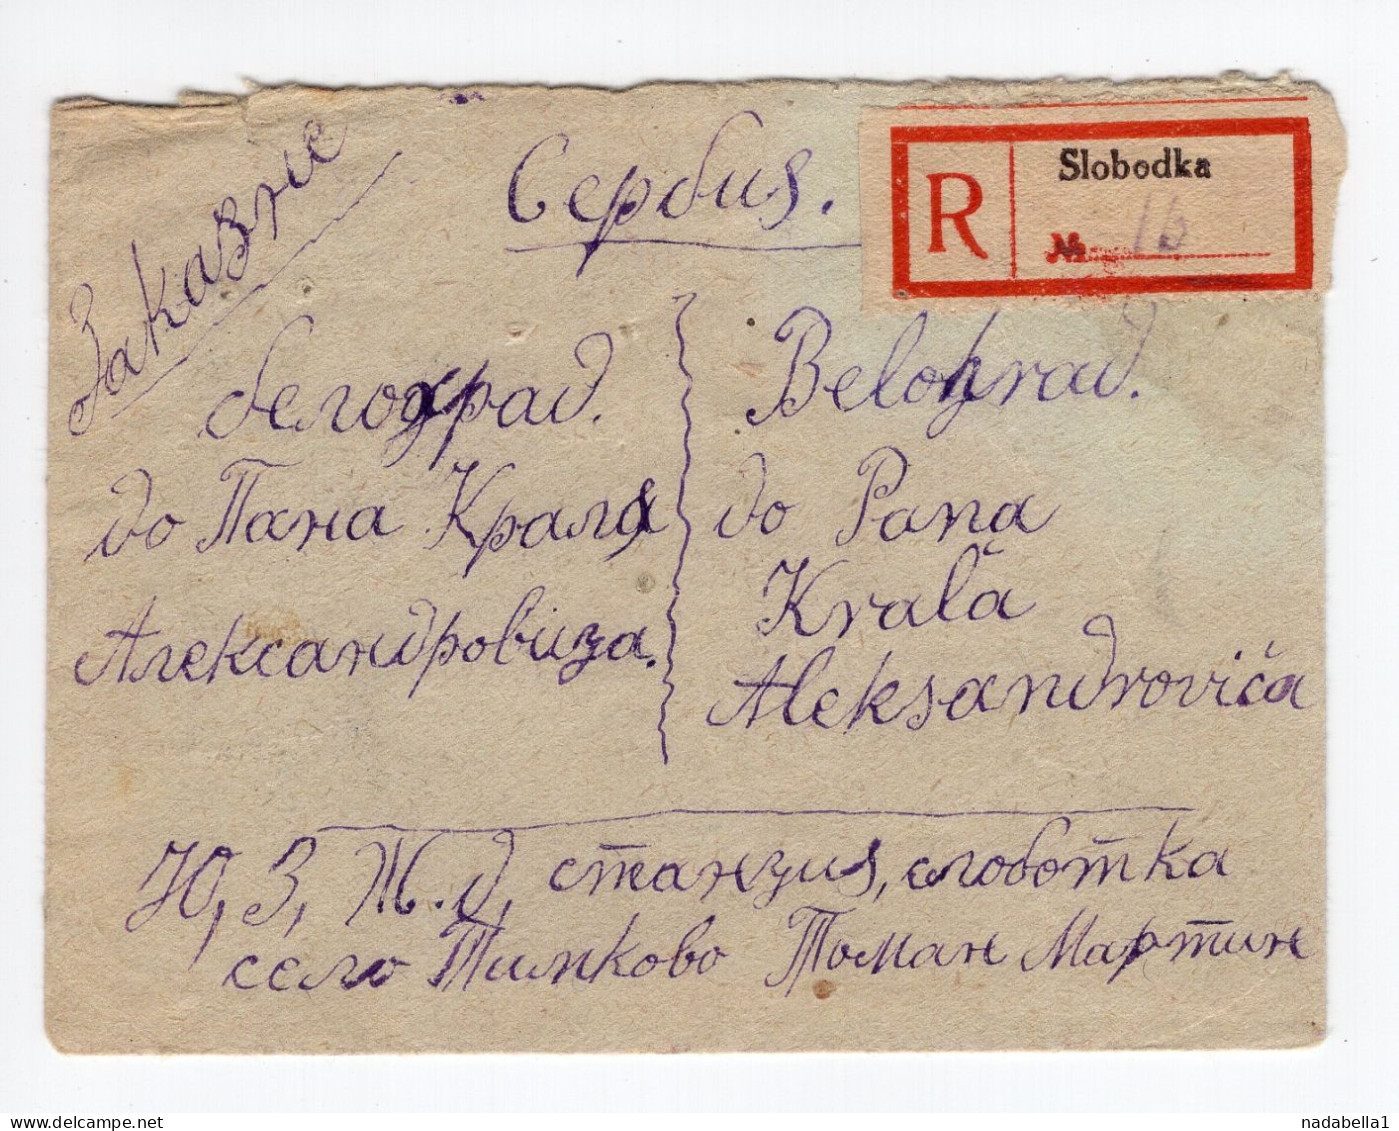 Заказне
Сербия.
R
Slobodka
№ 16
белоград.
до Пана Краля
Александровіза.
Belohrad.
до Pana
Krală
Aleksandrovića
Ю, З, Ж.д, станзия, слоботка
село Тимково Томан Мартин
nadabella1